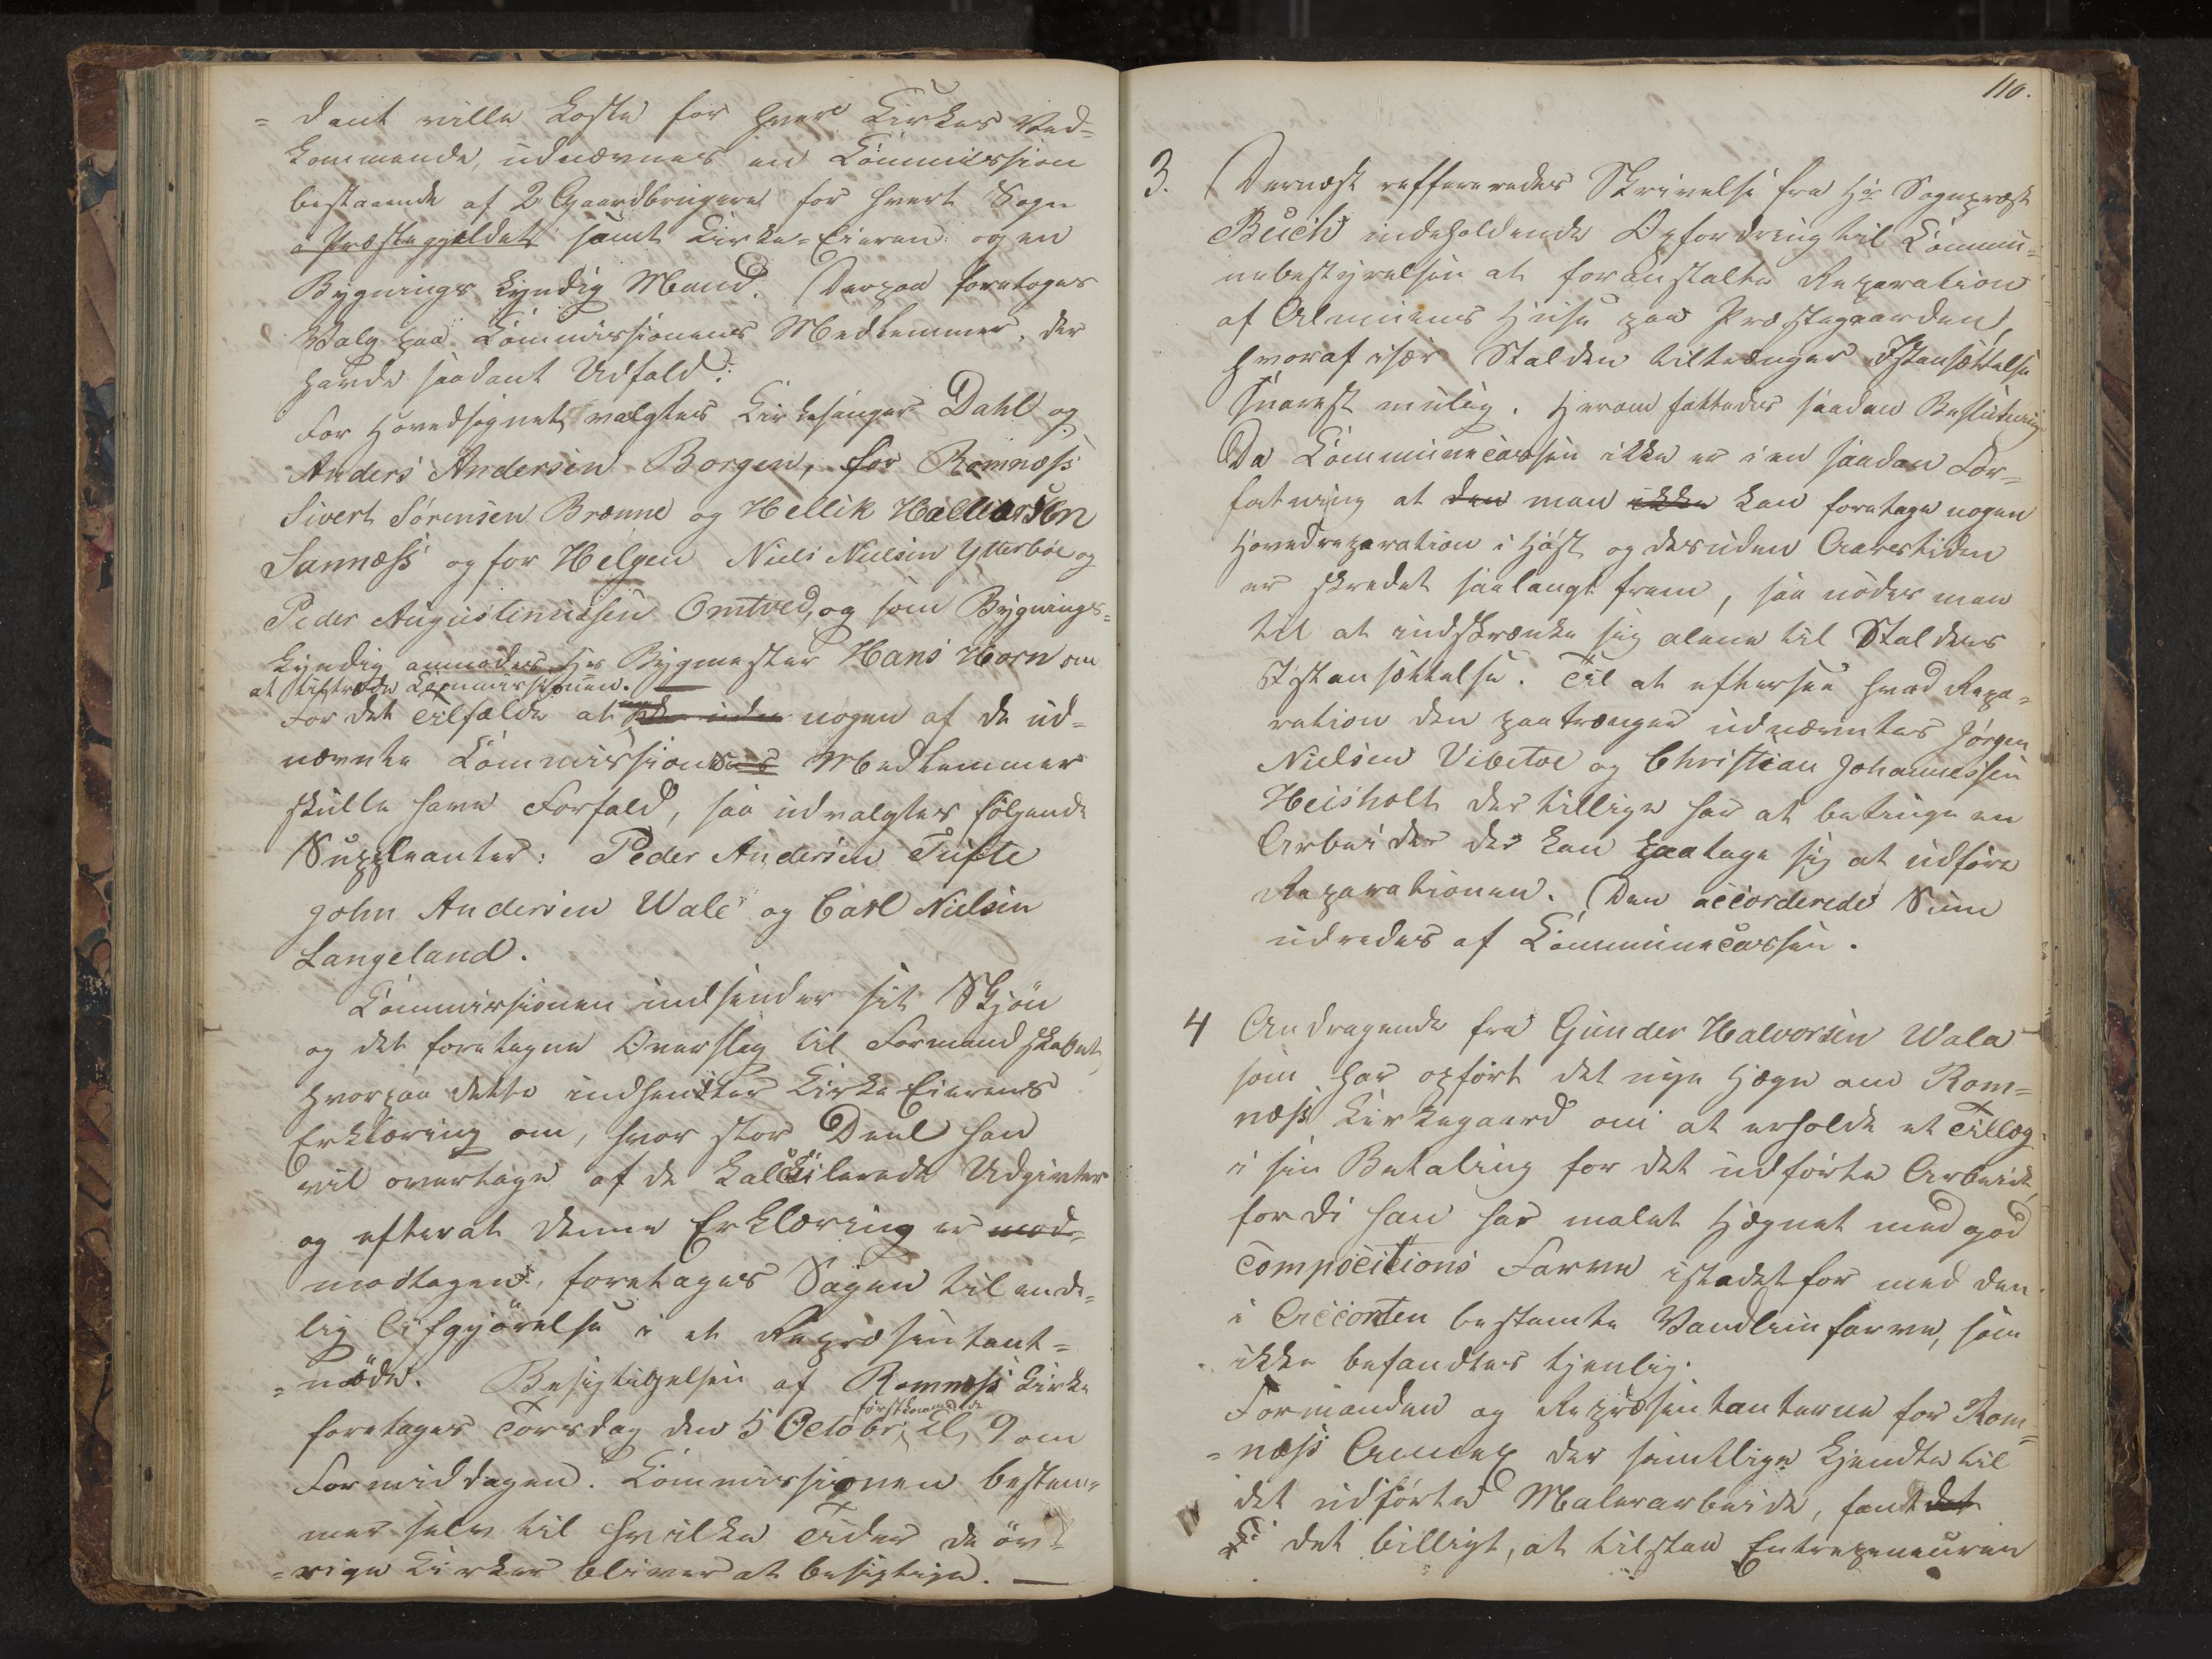 = dant ville koste for hver Kirkes Ved=
kommende, udnævnes en Commission
bestaaende af 2 Gaardbrugere for hvert Sogn
i Præstegjeldet samt Kirke=Eieren og en
Bygnings kyndig Mand. Derpaa foretoges
Valg paa Commissionens Medlemmer, der
havde saadant Udfald:
For Hovedsognet valgtes Kirkesanger Dahl og
Anders Andersen Borgen, for Romnæss
Sivert Sørensen Brænne og Hellik Halvorsen
Sannæss og for Helgen Niels Nielsen Ytterbøe og
Peder Augustinussen Omtved, og som Bygnings=
kyndig anmodes Hr Bygmester Hans Horn om
at tiltræde Commissionen.
For det Tilfælde at nogen af de ud=
nævnte Commissions Medlemmer
skulle have Forfald, saa udvalgtes følgende
Suppleanter: Peder Andersen Tufte
John Andersen Wale og Carl Nielsen
Langeland.
Commissionen indsender sit Skjøn
og det foretagne Overslag til Formandskabet,
hvorpaa dette indhenter Kirke Eierens
Erklæring om, hvor stor Deel han
vil overtage af de kalkulerede Udgivter
og efterat denne Erklæring er mod=
modtagen, foretages Sagen til ende=
lig Afgjørelse i et Repræsentant=
=møde. Besigtigelsen af Romnæss Kirke
førstkommende
foretages Torsdag den 5 Octobr, Kl, 9 om
Formiddagen. Commissionen bestem=
mer selv til hvilke Tider de øv=
=rige Kirker bliver at besigtige. —
110.
3. Dernæst reffereredes Skrivelse fra Hr Sognepræst
Buch indeholdende Opfordring til Commu=
nebestyrelsen at foranstalte Reparation
af Almuens Huse paa Præstegaarden,
hvoraf især Stalden tiltrænger Istansættelse
snarest mulig. Herom fattedes saadan Beslutning
Da Communecassen ikke er i en saadan For=
fatning at den man ikke kan foretage nogen
Hovedreparation i Høst og desuden Aarestiden
er skredet saalangt frem, saa nødes man
til at indskrænke sig alene til Staldens
Istansættelse. Til at eftersee hvad Repa=
ration den paatrænger udnævntes Jørgen
Nielsen Vibetoe og Christian Johannessen
Heisholt der tillige har at betinge en
Arbeider der kan paatage sig at udføre
Reparationen. Den accorderede Sum
udredes af Communecassen.
4 Andragende fra Gunder Halvorsen Wala
som har opført det nye Hægn om Rom=
næss Kirkegaard om at erholde et Tillæg
i sin Betaling for det udførte Arbeide,
fordi han har malet Hægnet med god
Compositions Farve istedetfor med den
i Accorten bestemte Vandlimfarve, som
ikke befandtes tjenlig.
Formanden og Repræsentanterne for Rom=
=næss Annex der samtlige kjendte til
det udførte Malerarbeide, fandt det
det billigt, at tilstaa Entrepeneuren